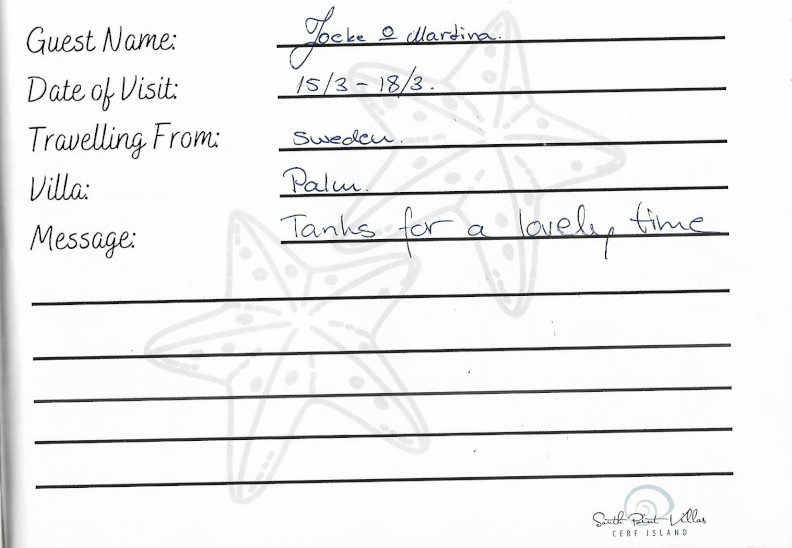 Guest Name: Jocke o Martina.
Date of Visit: 15/3 - 18/3.
Travelling From: Sweden.
Villa: Palm.
Message: Tanks for a lovely time
South Point Villas
CERF ISLAND